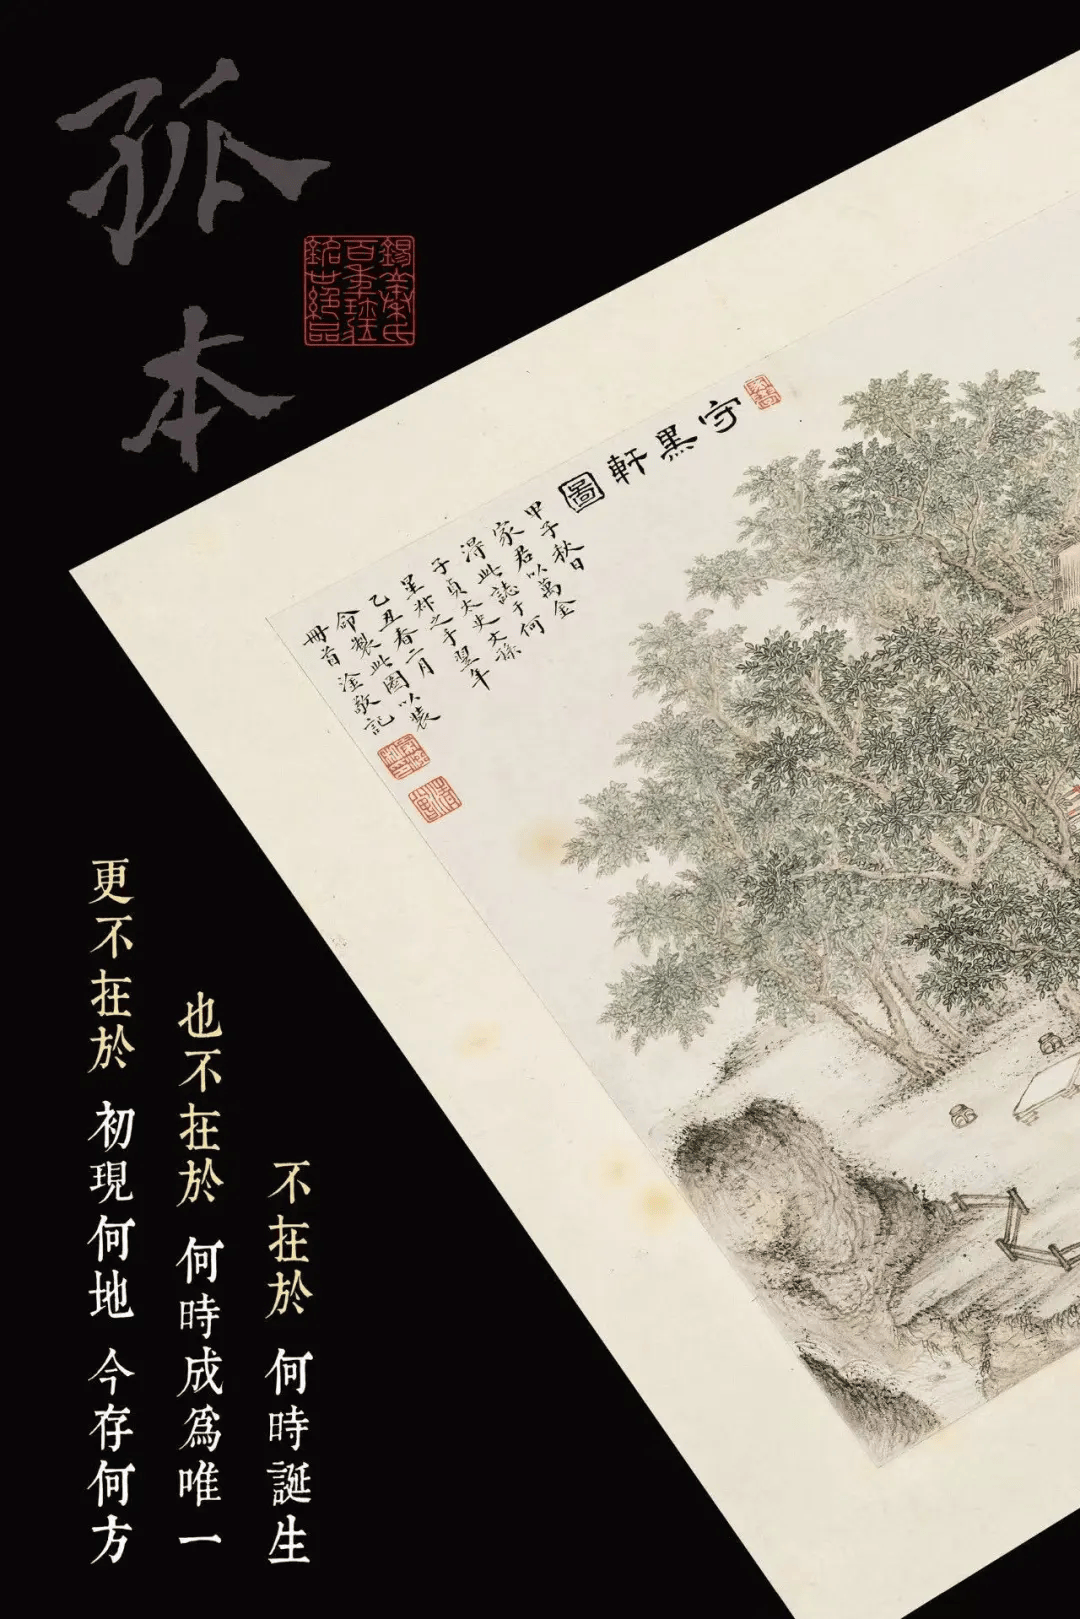 孤本
銘世絕品
守黑軒圖
甲子秋日
家君以萬金
得此誌于何
子貞太史文孫
星叔之手翌年
乙丑春二月
命製此圖以裝
冊首淦敬記
不在於 何時誕生
也不在於 何時成爲唯一
更不在於 初現何地 今存何方